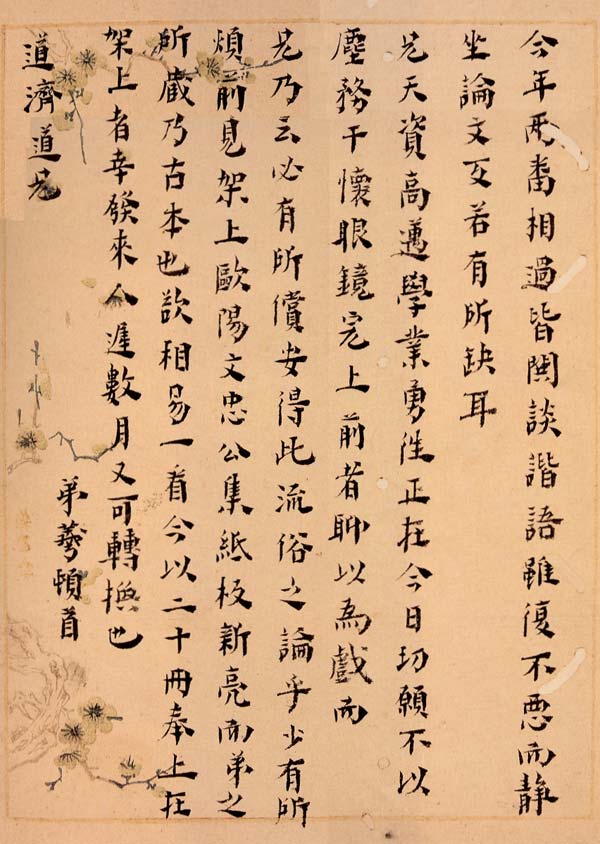 今年两番相過皆閒談諧語雖復不惡而靜
坐論文反若有所缺耳
兄天資高邁學業勇往正在今日切願不以
塵務干懷眼鏡完上前者聊以為戲而
兄乃云必有所償安得此流俗之論乎少有所
煩前見架上歐陽文忠公集紙板新亮而弟之
所藏乃古本也欲相易一看今以二十冊奉上在
架上者幸發來人遲數月又可轉換也
弟 頓首
道濟道兄